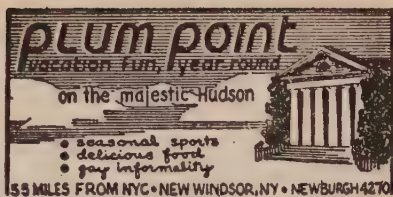 plum point
vacation fun, year round
on the majestic Hudson
• seasonal sports
• delicious food
• gay informality
55 MILES FROM NYC • NEW WINDSOR, NY • NEWBURGH 4270